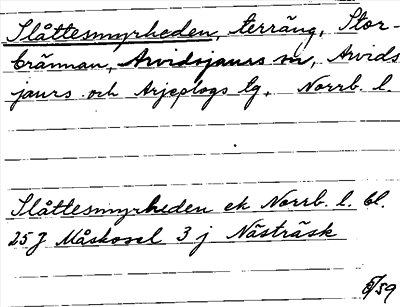 Slåttesmyrheden, terräng, Stor-
brännan, Arvidsjaurs sn, Arvids
jaurs och Arjeplogs tg. Norrb. l.
Slåttesmyrheden ek Norrb. l. bl.
25 J Måskosel 3 j Nästräsk
8/59